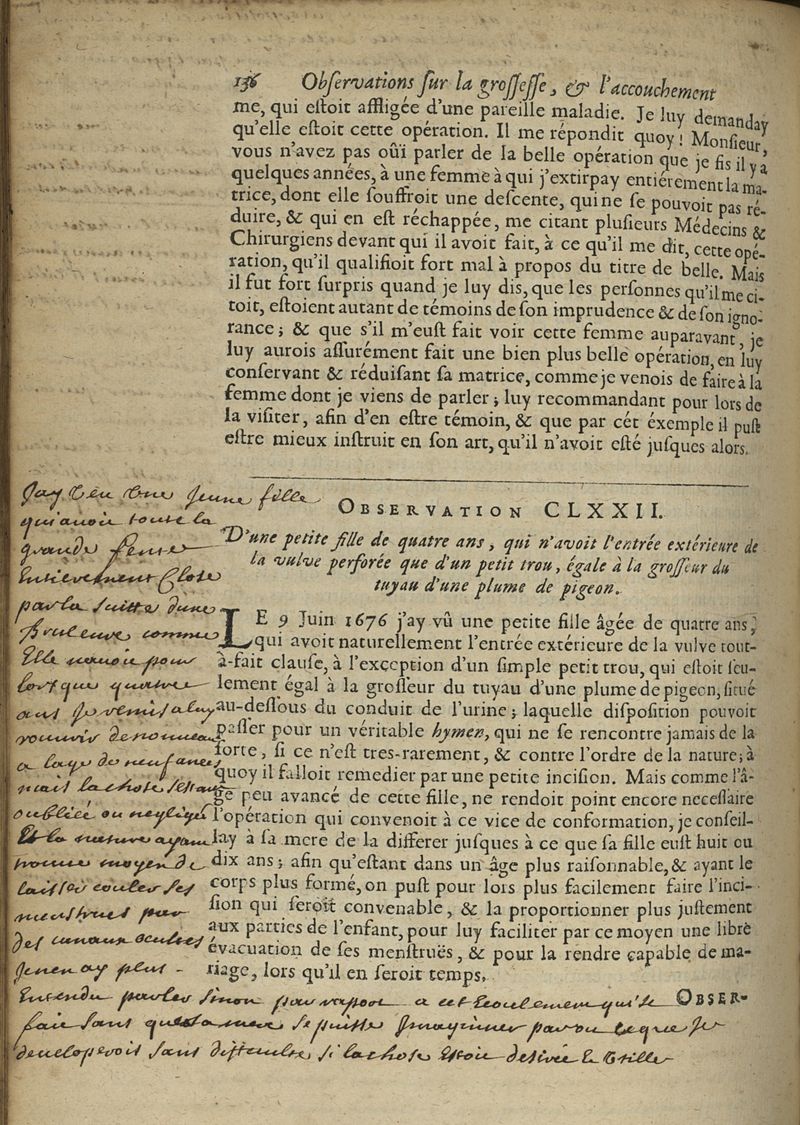 136 Obſervations ſur la groſſeſſe, & l'accouchement
me, qui eſtoit affligée d'une pareille maladie. Je luy demanday
qu'elle eſtoit cette opération. Il me répondit quoy! Monſieur,
vous n'avez pas oüi parler de la belle opération que je fis il y a
quelques années, à une femme à qui j'extirpay entiérement la ma-
trice, dont elle ſouffroit une deſcente, qui ne ſe pouvoit pas ré-
duire, & qui en eſt réchappée, me citant pluſieurs Médecins &
Chirurgiens devant qui il avoit fait, à ce qu'il me dit, cette opé-
ration, qu'il qualifioit fort mal à propos du titre de belle. Mais
il fut fort ſurpris quand je luy dis, que les perſonnes qu'il me ci-
toit, eſtoient autant de témoins de ſon imprudence & de ſon igno-
rance; & que s'il m'euſt fait voir cette femme auparavant, je
luy aurois aſſurément fait une bien plus belle opération, en luy
conſervant & réduiſant ſa matrice, comme je venois de faire à la
femme dont je viens de parler; luy recommandant pour lors de
la viſiter, afin d'en eſtre témoin, & que par cét éxemple il puſt
eſtre mieux inſtruit en ſon art, qu'il n'avoit eſté juſques alors.
OBSERVATION CLXXII.
D'une petite fille de quatre ans, qui n'avoit l'entrée extérieure de
la vulve perforée que d'un petit trou, égale à la groſſeur du
tuyau d'une plume de pigeon.
LE 9 Juin 1676 j'ay vû une petite fille âgée de quatre ans,
qui avoit naturellement l'entrée extérieure de la vulve tout-
à-fait clauſe, à l'exception d'un ſimple petit trou, qui eſtoit ſeu-
lement égal à la groſſeur du tuyau d'une plume de pigeon, ſitué
au-deſſous du conduit de l'urine; laquelle diſpoſition pouvoit
paſſer pour un véritable hymen, qui ne ſe rencontre jamais de la
ſorte, ſi ce n'eſt tres-rarement, & contre l'ordre de la nature; à
quoy il falloit remedier par une petite inciſion. Mais comme l'â-
ge peu avancé de cette fille, ne rendoit point encore neceſſaire
l'opération qui convenoit à ce vice de conformation, je conſeil-
lay à ſa mere de la differer juſques à ce que ſa fille euſt huit ou
dix ans; afin qu'eſtant dans un âge plus raiſonnable, & ayant le
corps plus formé, on puſt pour lors plus facilement faire l'inci-
ſion qui ſeroit convenable, & la proportionner plus juſtement
aux parties de l'enfant, pour luy faciliter par ce moyen une libre
évacuation de ſes menſtruës, & pour la rendre capable de ma-
riage, lors qu'il en ſeroit temps.
OBSER-
Jay veu une jeune fille
qui avoit toute la
grande fente
entierement
par la suitte dune
comme
pour
ouvrir de nouveau
oubliée ou negligé
et la nature ayant
trouvé moyen de
laisser couler ses
menstrues par
des canaux occultes
je nen ay plus